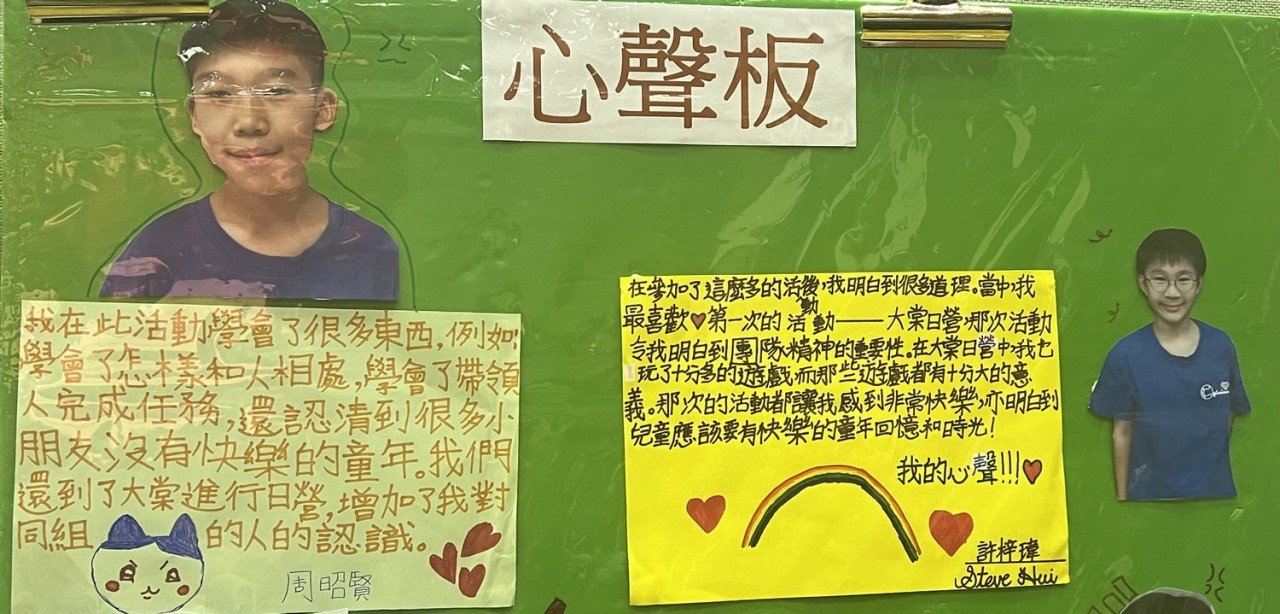 心聲板
我在此活動學會了很多東西,例如:
學會了怎樣和人相處,學會了帶領
人完成任務,還認清到很多小
朋友沒有快樂的童年。我們
還到了大棠進行日營,增加了我對
同組的人的認識。
周昭賢
在參加了這麼多的活動後,我明白到很多道理。當中,我
最喜歡♥第一次的活動——大棠日營,那次活動
令我明白到團隊精神的重要性。在大棠日營中,我也
玩了十分多的遊戲,而那些遊戲都有十分大的意
義。那次的活動都讓我感到非常快樂,亦明白到
兒童應該要有快樂的童年回憶和時光!
我的心聲!!!♥
許梓瑋
Steve Hui